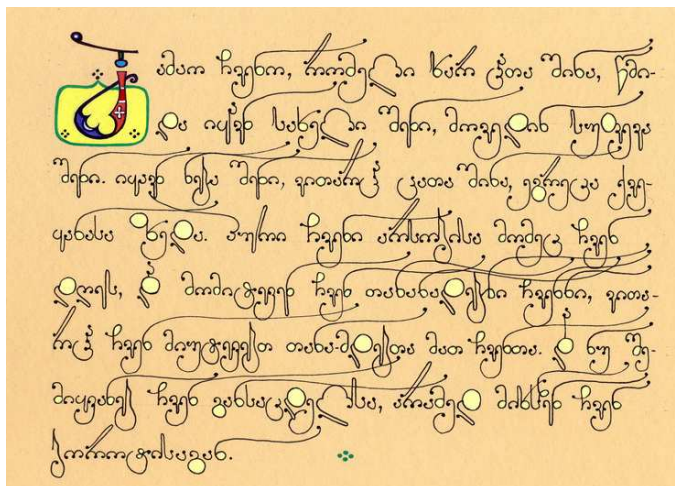 მამაო ჩვენო, რომელი ხარ ცათა შინა, წმი-
და იყავნ სახელი შენი, მოვედინ სუფევა
შენი. იყავნ ნება შენი, ვითარცა ცათა შინა, ეგრეცა ქვე-
ყანასა ზედა. პური ჩვენი არსობისა მომეც ჩვენ
დღეს, და მომიტევენ ჩვენ თანანადებნი ჩვენნი, ვითა-
რცა ჩვენ მივუტევებთ თანა-მდებთა მათ ჩვენთა. და ნუ შე-
მიყვანებ ჩვენ განსაცდელსა, არამედ მიხსენ ჩვენ
ბოროტისაგან.